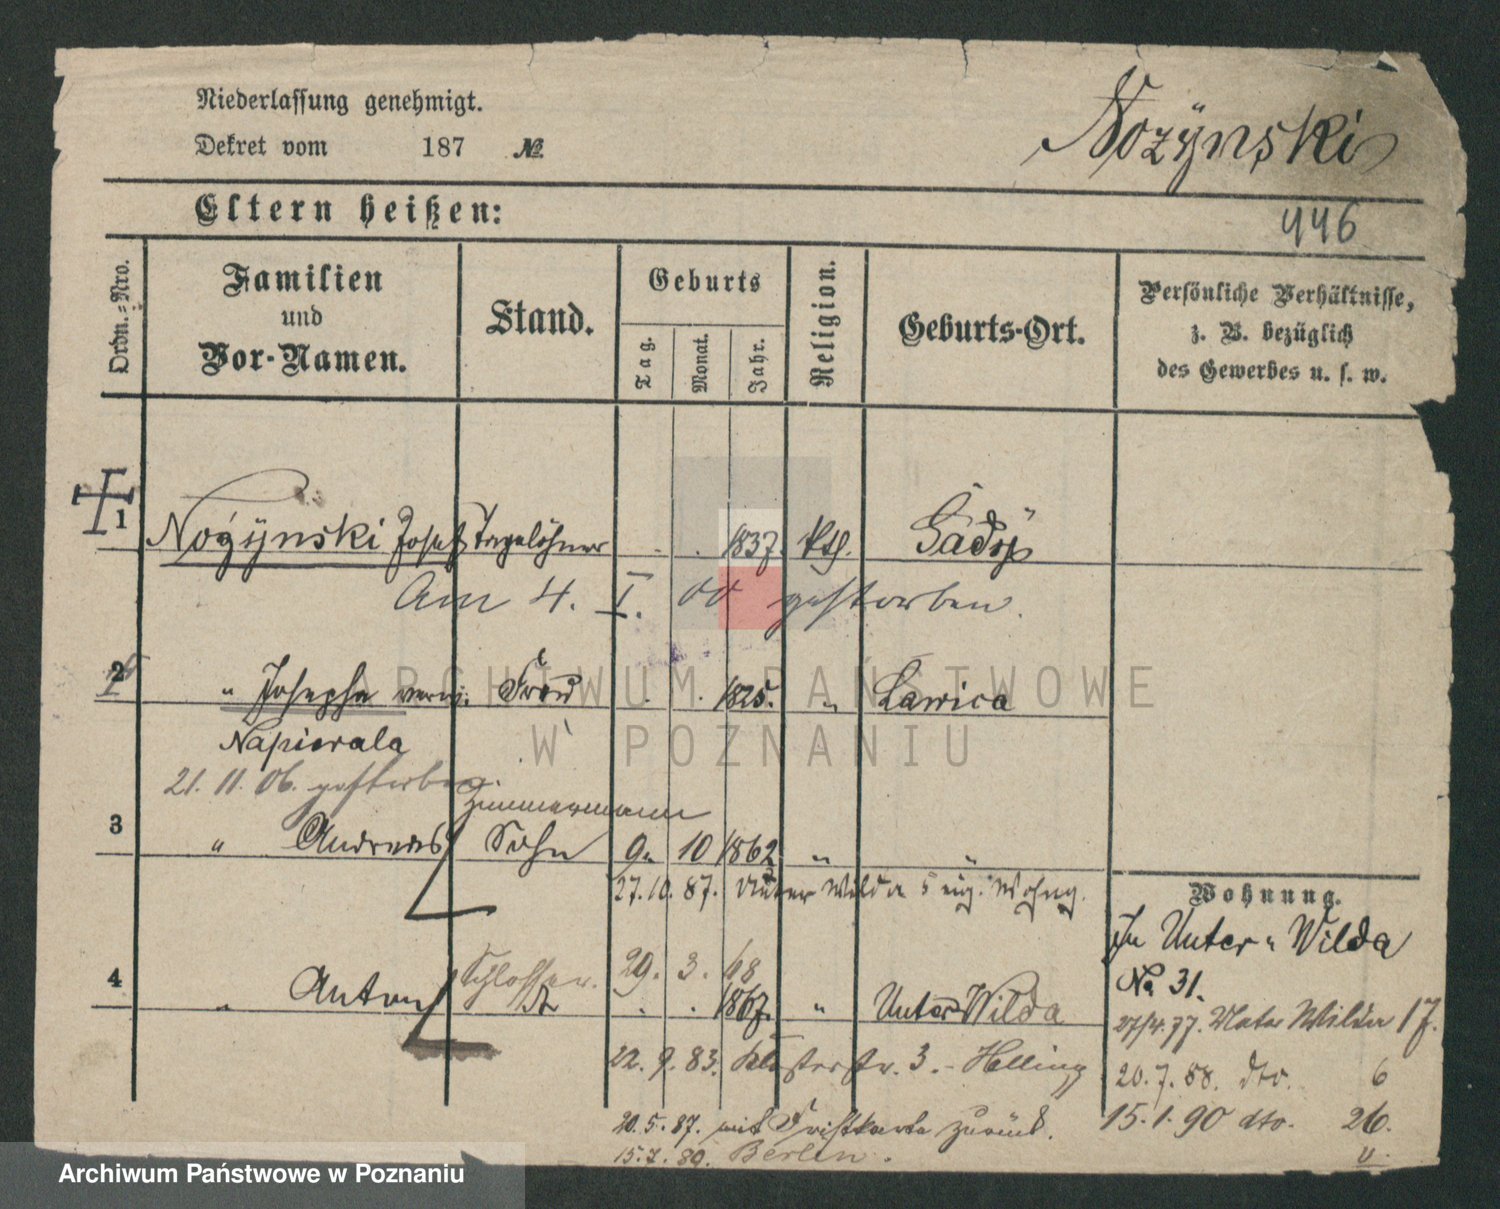 Niederlassung genehmigt.
Dekret vom 187 №
Nożÿnski
Eltern heißen:
446
Ordn.-Nro.
Familien
und
Vor-Namen.
Stand.
Geburts
Tag.
Monat.
Jahr.
Religion.
Geburts-Ort.
Persönliche Verhältnisse,
z. B. bezüglich
des Gewerbes u. s. w.
1 Nożÿnski Josef Tagelöhner . . 1837. kth.
Am 4. I. 00 gestorben.
2 " Josepha verw. Frau . . 1825. " Lawica
Napierala
21. 11. 06. gestorben.
Zimmermann
3 " Andreas Sohn 9. 10 1862 " "
27.10.87. Unter Wilda 5 eig. Wohng.
Schlosser. 29. 3. 68
4 " Anton . . 1867. " Unter Wilda
22. 9. 83. Klosterstr. 3. - Helling
20.5.87. mit Fristkarte zurück.
15.7.89. Berlin.
Wohnung.
In Unter-Wilda
No 31.
27/4.77. Unter Wilda 17.
20.7.88. dto. 6
15.1.90 dto. 26.
ARCHIWUM PAŃSTWOWE
W POZNANIU
Archiwum Państwowe w Poznaniu